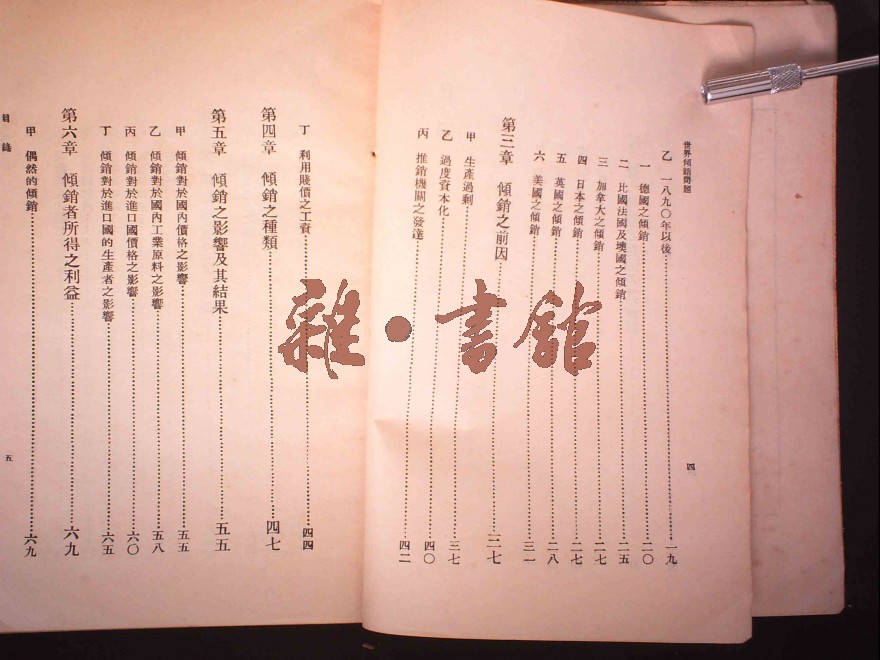 世界傾銷問題
四
乙　一八九〇年以後……一九
一　德國之傾銷……二〇
二　比國法國及墺國之傾銷……二五
三　加拿大之傾銷……二七
四　日本之傾銷……二七
五　英國之傾銷……二八
六　美國之傾銷……三一
第三章　傾銷之前因……三七
甲　生產過剩……三七
乙　過度資本化……四〇
丙　推銷機關之發達……四二
丁　利用賤價之工資……四四
第四章　傾銷之種類……四七
第五章　傾銷之影響及其結果……五五
甲　傾銷對於國內價格之影響……五五
乙　傾銷對於國內工業原料之影響……五八
丙　傾銷對於進口國價格之影響……六〇
丁　傾銷對於進口國的生產者之影響……六五
第六章　傾銷者所得之利益……六九
甲　偶然的傾銷……六九
目錄
五
雜・書館